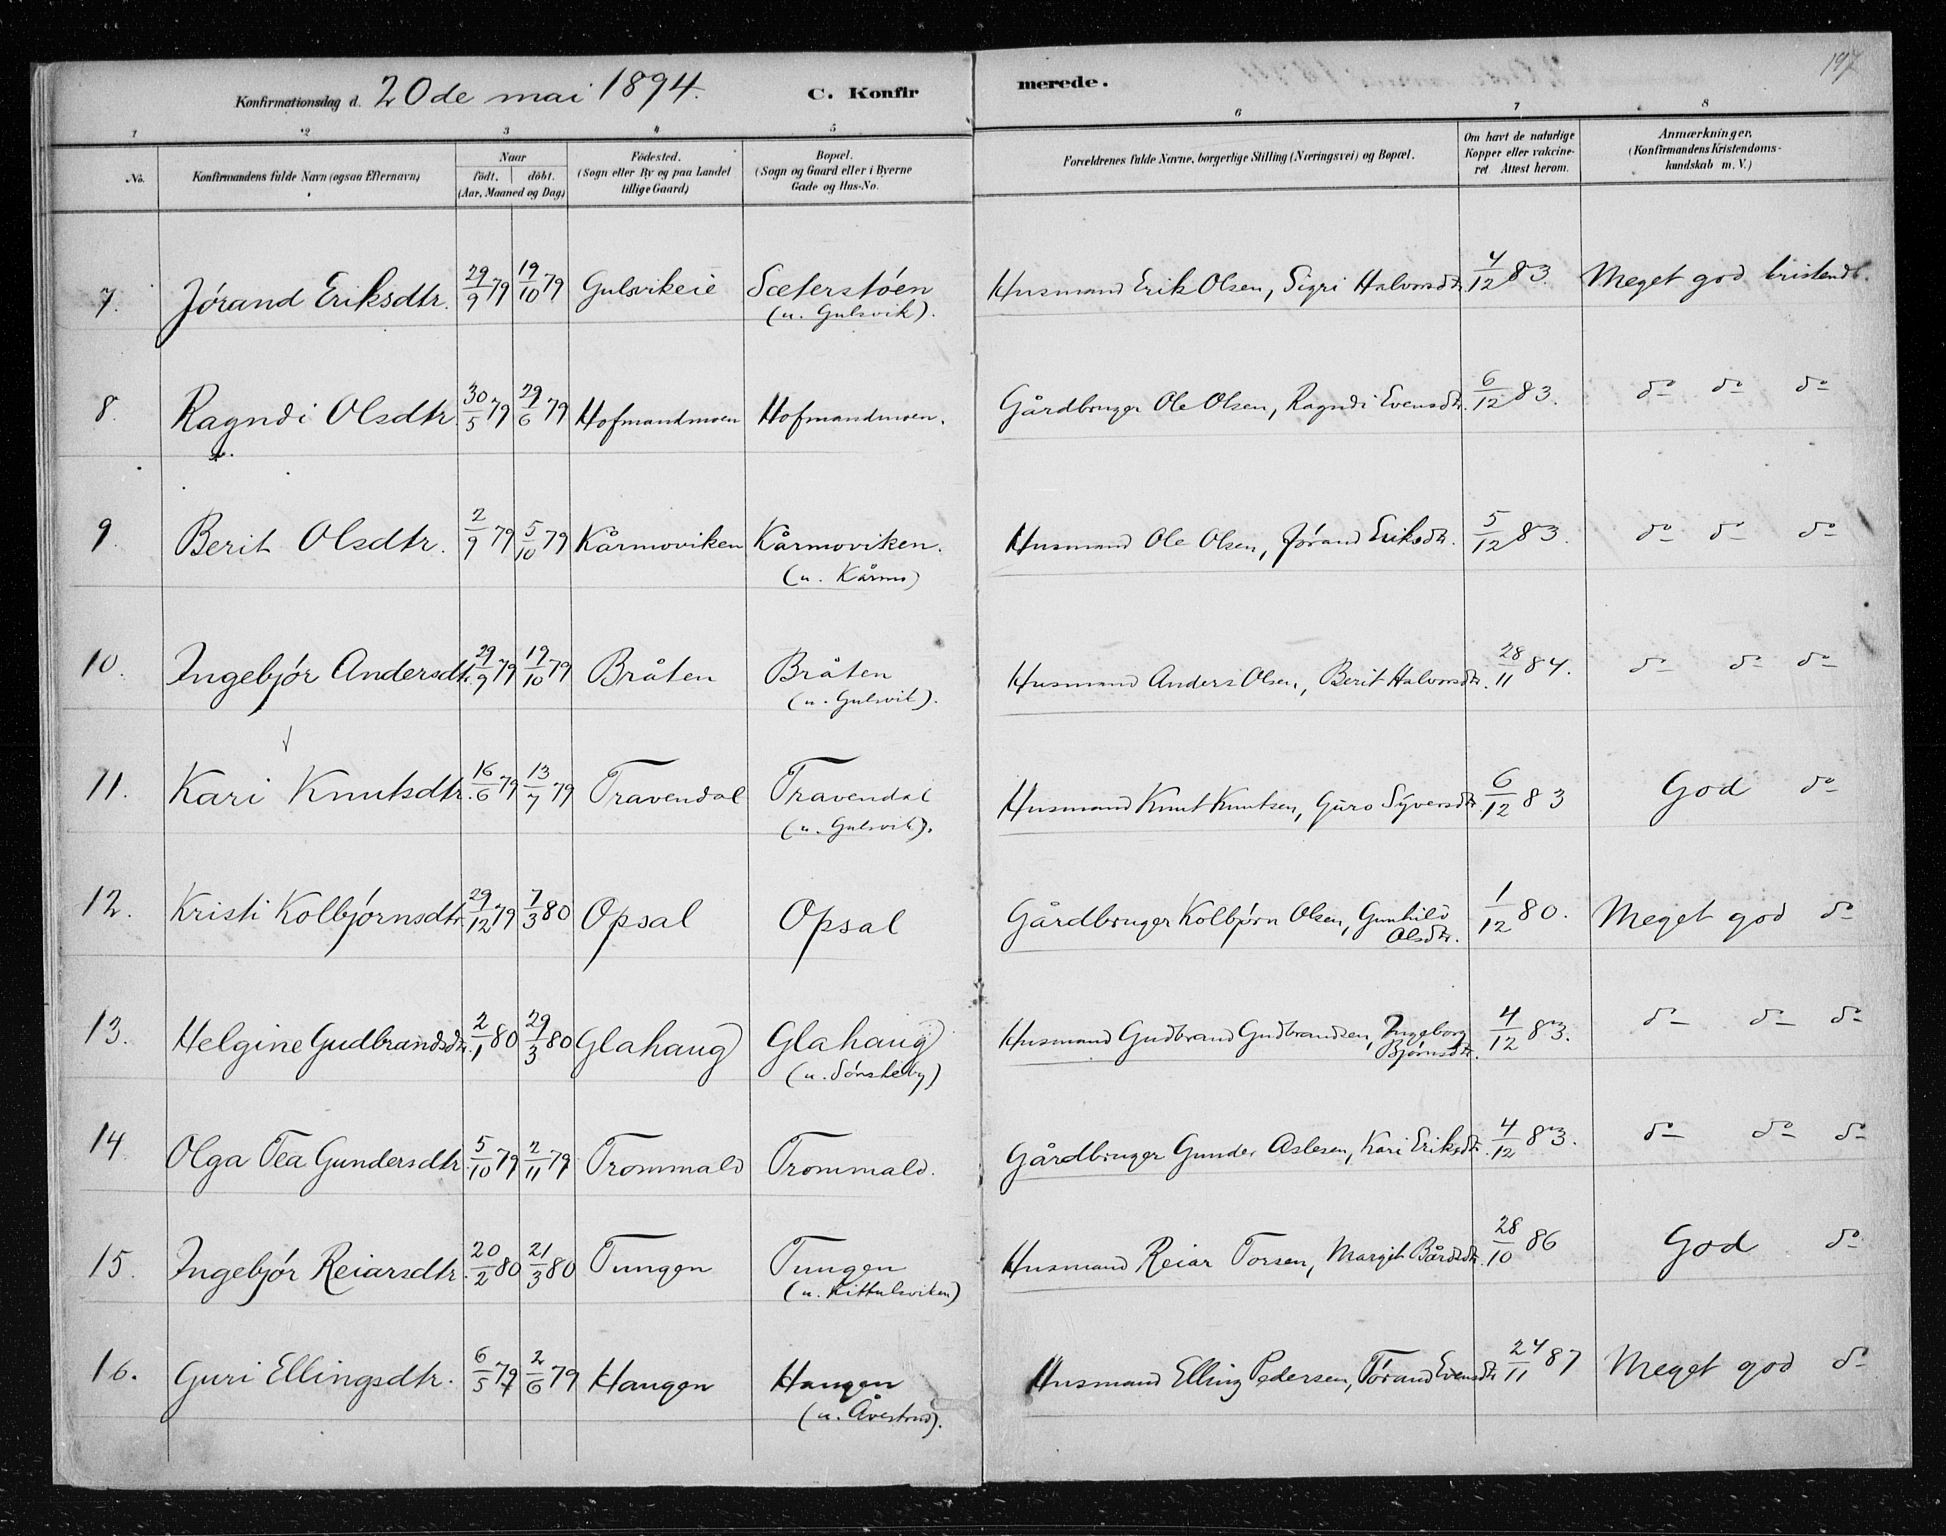 197
Konfirmationsdag d. 20de mai 1894. C. Konfirmerede.
1 2 3 4 5 6 7 8
No. Konfirmandens fulde Navn (ogsaa Efternavn) Naar født. døbt. (Aar, Maaned og Dag) Fødested. (Sogn eller By og paa Landet tillige Gaard) Bopæl. (Sogn og Gaard eller i Byerne Gade og Hus-No. Forældrenes fulde Navne, borgerlige Stilling (Næringsvei) og Bopæl. Om havt de naturlige Kopper eller vakcineret Attest herom. Anmærkninger. (Konfirmandens Kristendomskundskab m. V.)
7. Jórand Eriksdtr. 29/9 79 19/10 79 Gulsvikeie Sæterstóen Husmand Erik Olsen, Sigri Halvorsdtr. 4/12 83. Meget god kristendk.
(u. Gulsvik).
8. Ragndi Olsdtr. 30/5 79 29/6 79 Hofmandmoen Hofmandmoen. Gårdbruger Ole Olsen, Ragndi Evensdtr. 6/12 83. do do do
9. Berit Olsdtr. 2/9 79 5/10 79 Kårmoviken Kårmoviken. Husmand Ole Olsen, Jórand Eriksdtr. 5/12 83. do do do
(u. Kårmo)
10. Ingebjór Andersdtr. 29/9 79 19/10 79 Bråten Bråten Husmand Anders Olsen, Berit Halvorsdtr. 28/11 84. do do do
(u. Gulsvik).
11. Kari Knutsdtr. 16/6 79 13/7 79 Travendal Travendal Husmand Knut Knutsen, Guro Syversdtr. 6/12 83 God do
(u. Gulsvik).
12. Kristi Kolbjórnsdtr. 29/12 79 7/3 80 Opsal Opsal Gårdbruger Kolbjórn Olsen, Gunhild 1/12 80. Meget god do
Olsdtr.
13. Helgine Gudbrandsdtr. 2/1 80 29/3 80 Glahaug Glahaug Husmand Gudbrand Gudbrandsen, Ingeborg 4/12 83. do do do
(u. Sónsteby) Bjórnsdtr.
14. Olga Tea Gundersdtr. 5/10 79 2/11 79 Trommald Trommald. Gårdbruger Gunder Aslesen, Kari Eriksdtr. 4/12 83. do do do
15. Ingebjór Reiarsdtr. 20/2 80 21/3 80 Tungen Tungen Husmand Reiar Torsen, Margit Bårdsdtr. 28/10 86 God do
(u. Kittulsviken)
16. Guri Ellingsdtr. 6/5 79 2/6 79 Haugen Haugen Husmand Elling Pedersen, Tórand Evensdtr. 24/11 87 Meget god do
(u. Åvestrud).